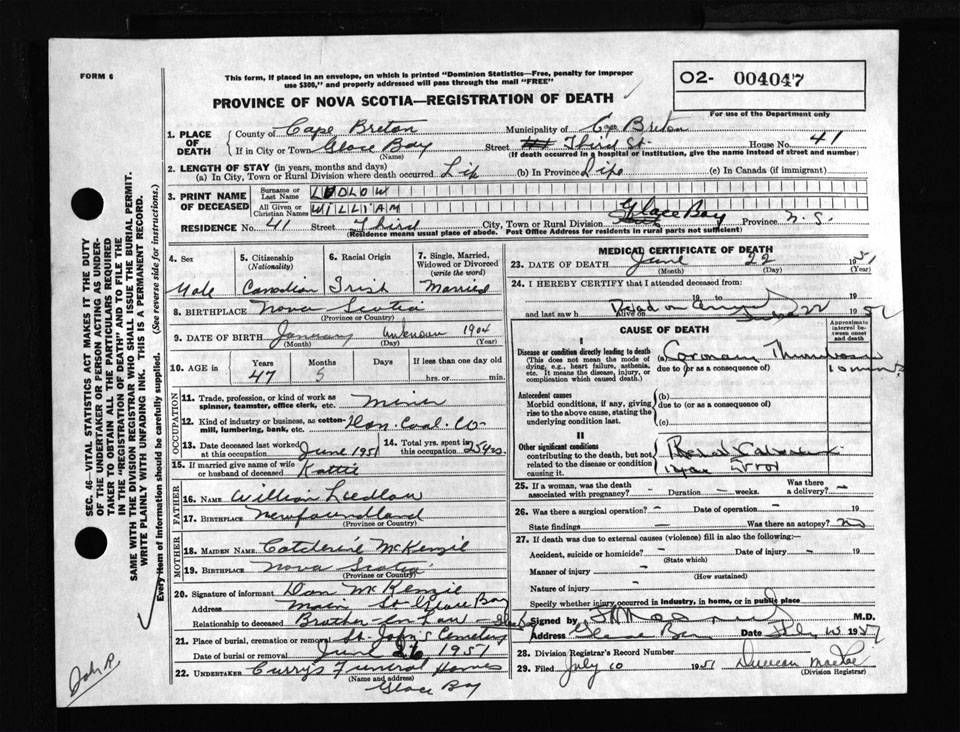 FORM 6
This form, if placed in an envelope, on which is printed "Dominion Statistics—Free, penalty for improper
use $300," and properly addressed will pass through the mail "FREE"
O2- 004047
For use of the Department only
PROVINCE OF NOVA SCOTIA—REGISTRATION OF DEATH
1. PLACE OF DEATH
County of Cape Breton Municipality of C. Breton
If in City or Town Glace Bay Street Third St. House No. 41
(Name) (If death occurred in a hospital or institution, give the name instead of street and number)
2. LENGTH OF STAY (in years, months and days)
(a) In City, Town or Rural Division where death occurred. Life (b) In Province Life (c) In Canada (if immigrant)
3. PRINT NAME OF DECEASED
Surname or Last Name LUDLOW
All Given or Christian Names WILLIAM
RESIDENCE No. 41 Street Third City, Town or Rural Division Glace Bay Province N.S.
(Residence means usual place of abode. Post Office Address for residents in rural parts not sufficient)
4. Sex Male
5. Citizenship (Nationality) Canadian
6. Racial Origin Irish
7. Single, Married, Widowed or Divorced (write the word) Married
8. BIRTHPLACE Nova Scotia
(Province or Country)
9. DATE OF BIRTH January unknown 1904
(Month) (Day) (Year)
10. AGE in Years 47 Months 5 Days If less than one day old
hrs. or min.
OCCUPATION
11. Trade, profession, or kind of work as spinner, teamster, office clerk, etc. Miner
12. Kind of industry or business, as cotton-mill, lumbering, bank, etc. Dom. Coal. Co.
13. Date deceased last worked at this occupation June 1951
14. Total yrs. spent in this occupation 25 yrs.
15. If married give name of wife or husband of deceased Kattie
FATHER
16. NAME William Ludlow
17. BIRTHPLACE Newfoundland
(Province or Country)
MOTHER
18. MAIDEN NAME Catcherine McKenzie
19. BIRTHPLACE Nova Scotia
(Province or Country)
20. Signature of informant Dan McKenzie
Address Main St. Glace Bay
Relationship to deceased Brother-In Law
21. Place of burial, cremation or removal St. John's Cemetery
Date of burial or removal June 26 1951
22. UNDERTAKER Curry's Funeral Homes
(Name and address)
Glace Bay
MEDICAL CERTIFICATE OF DEATH
23. DATE OF DEATH June 22 1951
(Month) (Day) (Year)
24. I HEREBY CERTIFY that I attended deceased from:
19 to 19
and last saw h alive on 19
CAUSE OF DEATH
Approximate interval between onset and death
I
Disease or condition directly leading to death
(This does not mean the mode of dying, e.g., heart failure, asthenia, etc. It means the disease, injury, or complication which caused death.)
(a) Coronary Thrombosis
due to (or as a consequence of)
Antecedent causes
Morbid conditions, if any, giving rise to the above cause, stating the underlying condition last.
(b)
due to (or as a consequence of)
(c)
II
Other significant conditions
contributing to the death, but not related to the disease or condition causing it.
25. If a woman, was the death associated with pregnancy? – Duration – weeks. Was there a delivery? –
26. Was there a surgical operation? – Date of operation – 19
State findings – Was there an autopsy? no
27. If death was due to external causes (violence) fill in also the following:—
Accident, suicide or homicide? – Date of injury – 19
(State which)
Manner of injury –
(How sustained)
Nature of injury –
Specify whether injury occurred in industry, in home, or in public place
Signed by M.D.
Address Glace Bay Date July 1951
28. Division Registrar's Record Number
29. Filed July 10 1951 Duncan MacRae
(Division Registrar)
SEC. 46—VITAL STATISTICS ACT MAKES IT THE DUTY
OF THE UNDERTAKER OR PERSON ACTING AS UNDER-
TAKER TO OBTAIN ALL THE PARTICULARS REQUIRED
IN THE "REGISTRATION OF DEATH" AND TO FILE THE
SAME WITH THE DIVISION REGISTRAR WHO SHALL ISSUE THE BURIAL PERMIT.
WRITE PLAINLY WITH UNFADING INK. THIS IS A PERMANENT RECORD.
Every item of Information should be carefully supplied. (See reverse side for instructions.)
John R.